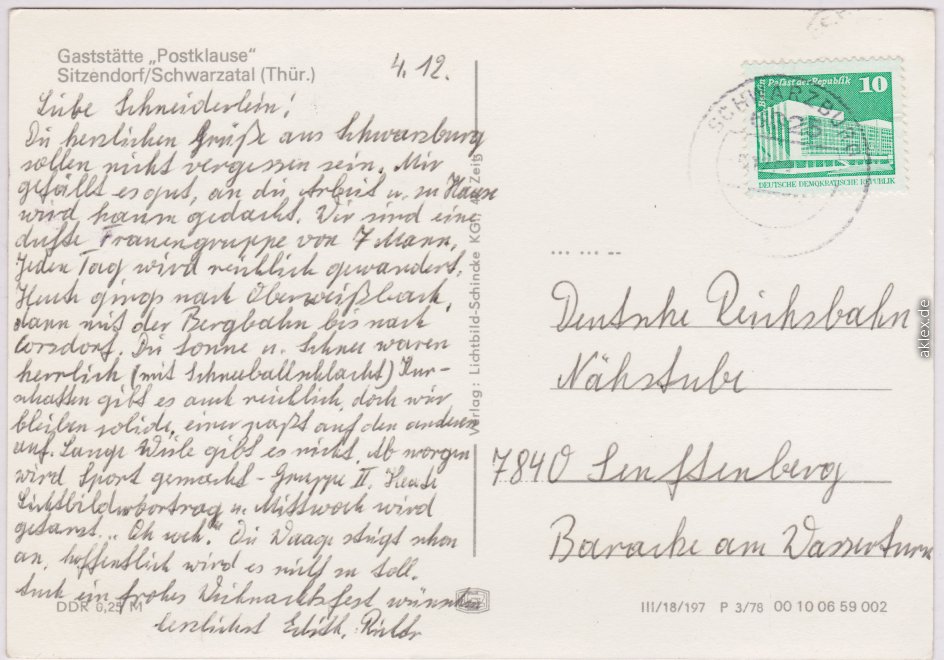 Gaststätte „Postklause“
Sitzendorf/Schwarzatal (Thür.)
4.12.
Liebe Schneiderlein!
Die herzlichen Grüße aus Schwarzburg
sollen nicht vergessen sein. Mir
gefällt es gut, an die Arbeit u. zu Hause
wird kaum gedacht. Wir sind eine
dufte Frauengruppe von 7 Mann.
Jeden Tag wird reichlich gewandert.
Heute gings nach Oberweißbach,
dann mit der Bergbahn bis nach
Corsdorf. Die Sonne u. Schnee waren
herrlich (mit Schneeballschlacht) Kur-
schatten gibt es auch reichlich, doch wir
bleiben solide, einer paßt auf den anderen
auf. Lange Weile gibt es nicht. Ab morgen
wird Sport gemacht - Gruppe II. Heute
Lichtbildervortrag u. Mittwoch wird
getanzt. „Oh weh“. Die Waage steigt schon
an, hoffentlich wird es nicht zu toll.
Auch ein frohes Weihnachtsfest wünschen
herzlichst Edith,
DDR 0,25 M
Verlag: Lichtbild-Schincke KG.
Zeitz
Berlin Palast der Republik 10
DEUTSCHE DEMOKRATISCHE REPUBLIK
SCHWARZBURG
... ... --
Deutsche Reichsbahn
Nähstube
7840 Senftenberg
Baracke am Wasserturm
III/18/197 P 3/78 00 10 06 59 002
aklex.de